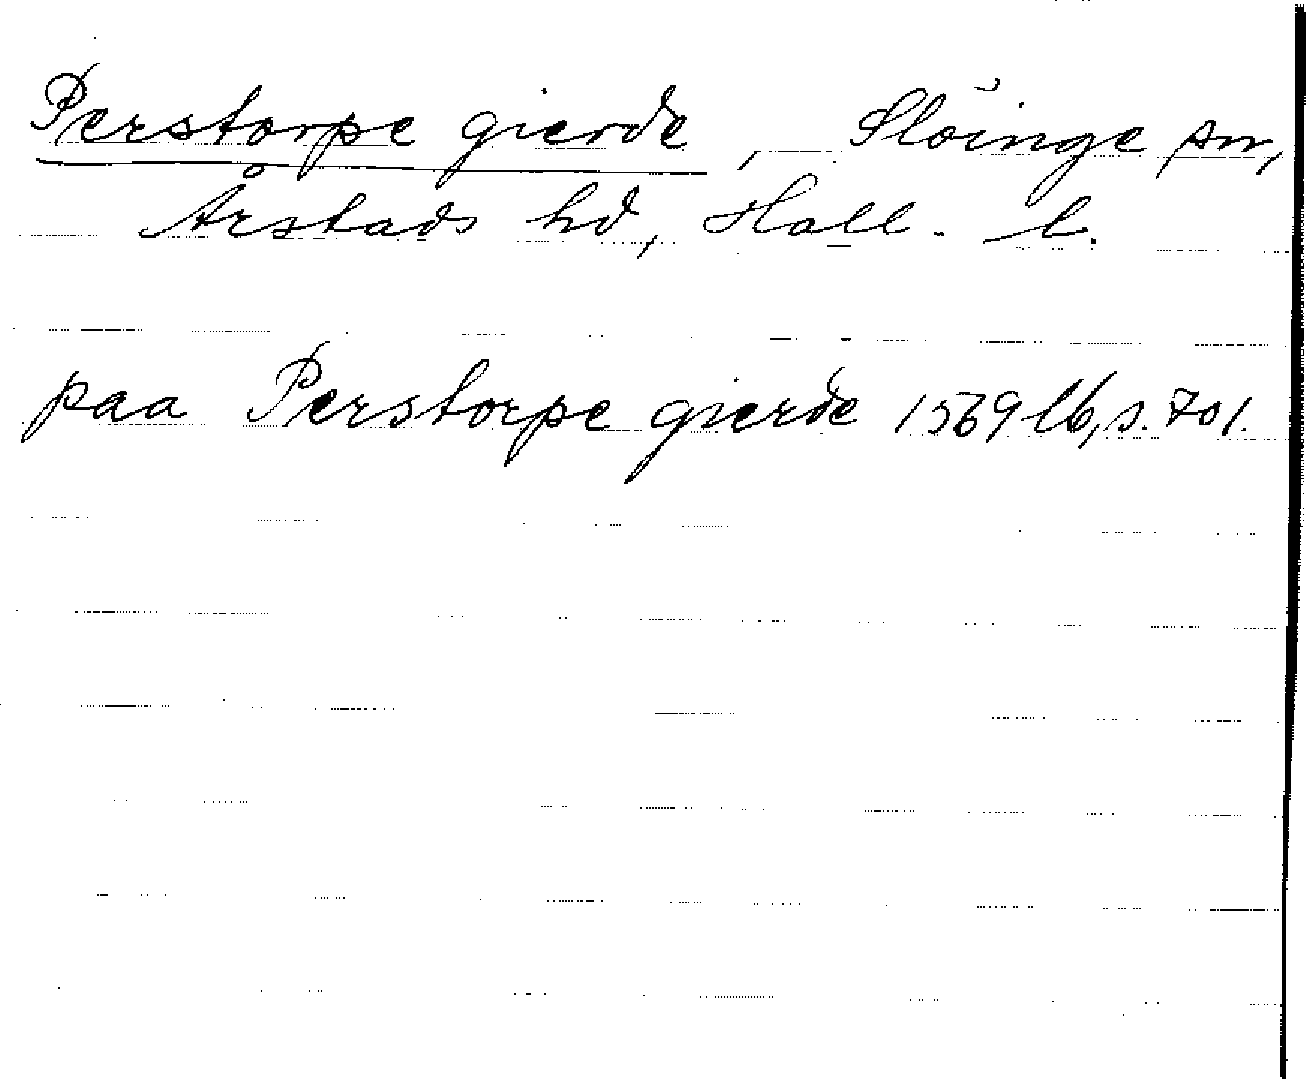 Perstorpe gierde, Slöinge sn,
Årstads hd, Hall. l.
paa Perstorpe gierde 1569 lb, s. 701.